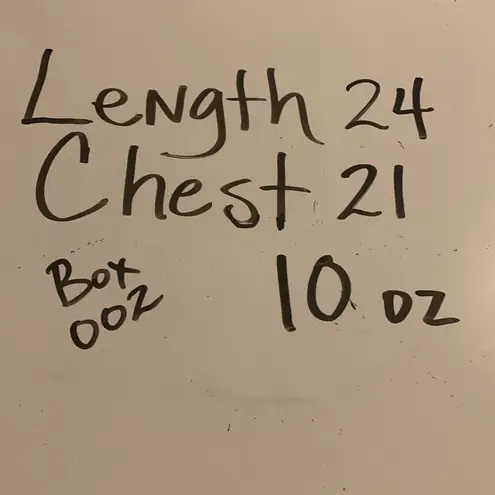 Length 24
Chest 21
Box
002
10 oz